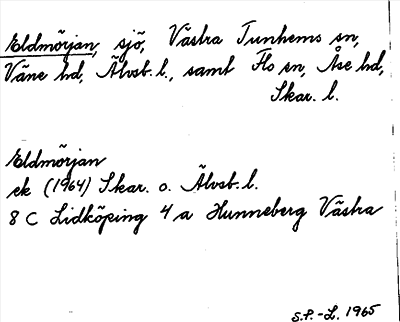 Eldmörjan, sjö, Västra Tunhems sn,
Väne hd, Älvsb. l., samt Flo sn, Åse hd,
Skar. l.
Eldmörjan
ek (1964) Skar. o. Älvsb. l.
8 C Lidköping 4 a Hunneberg Västra
S.P.-L. 1965